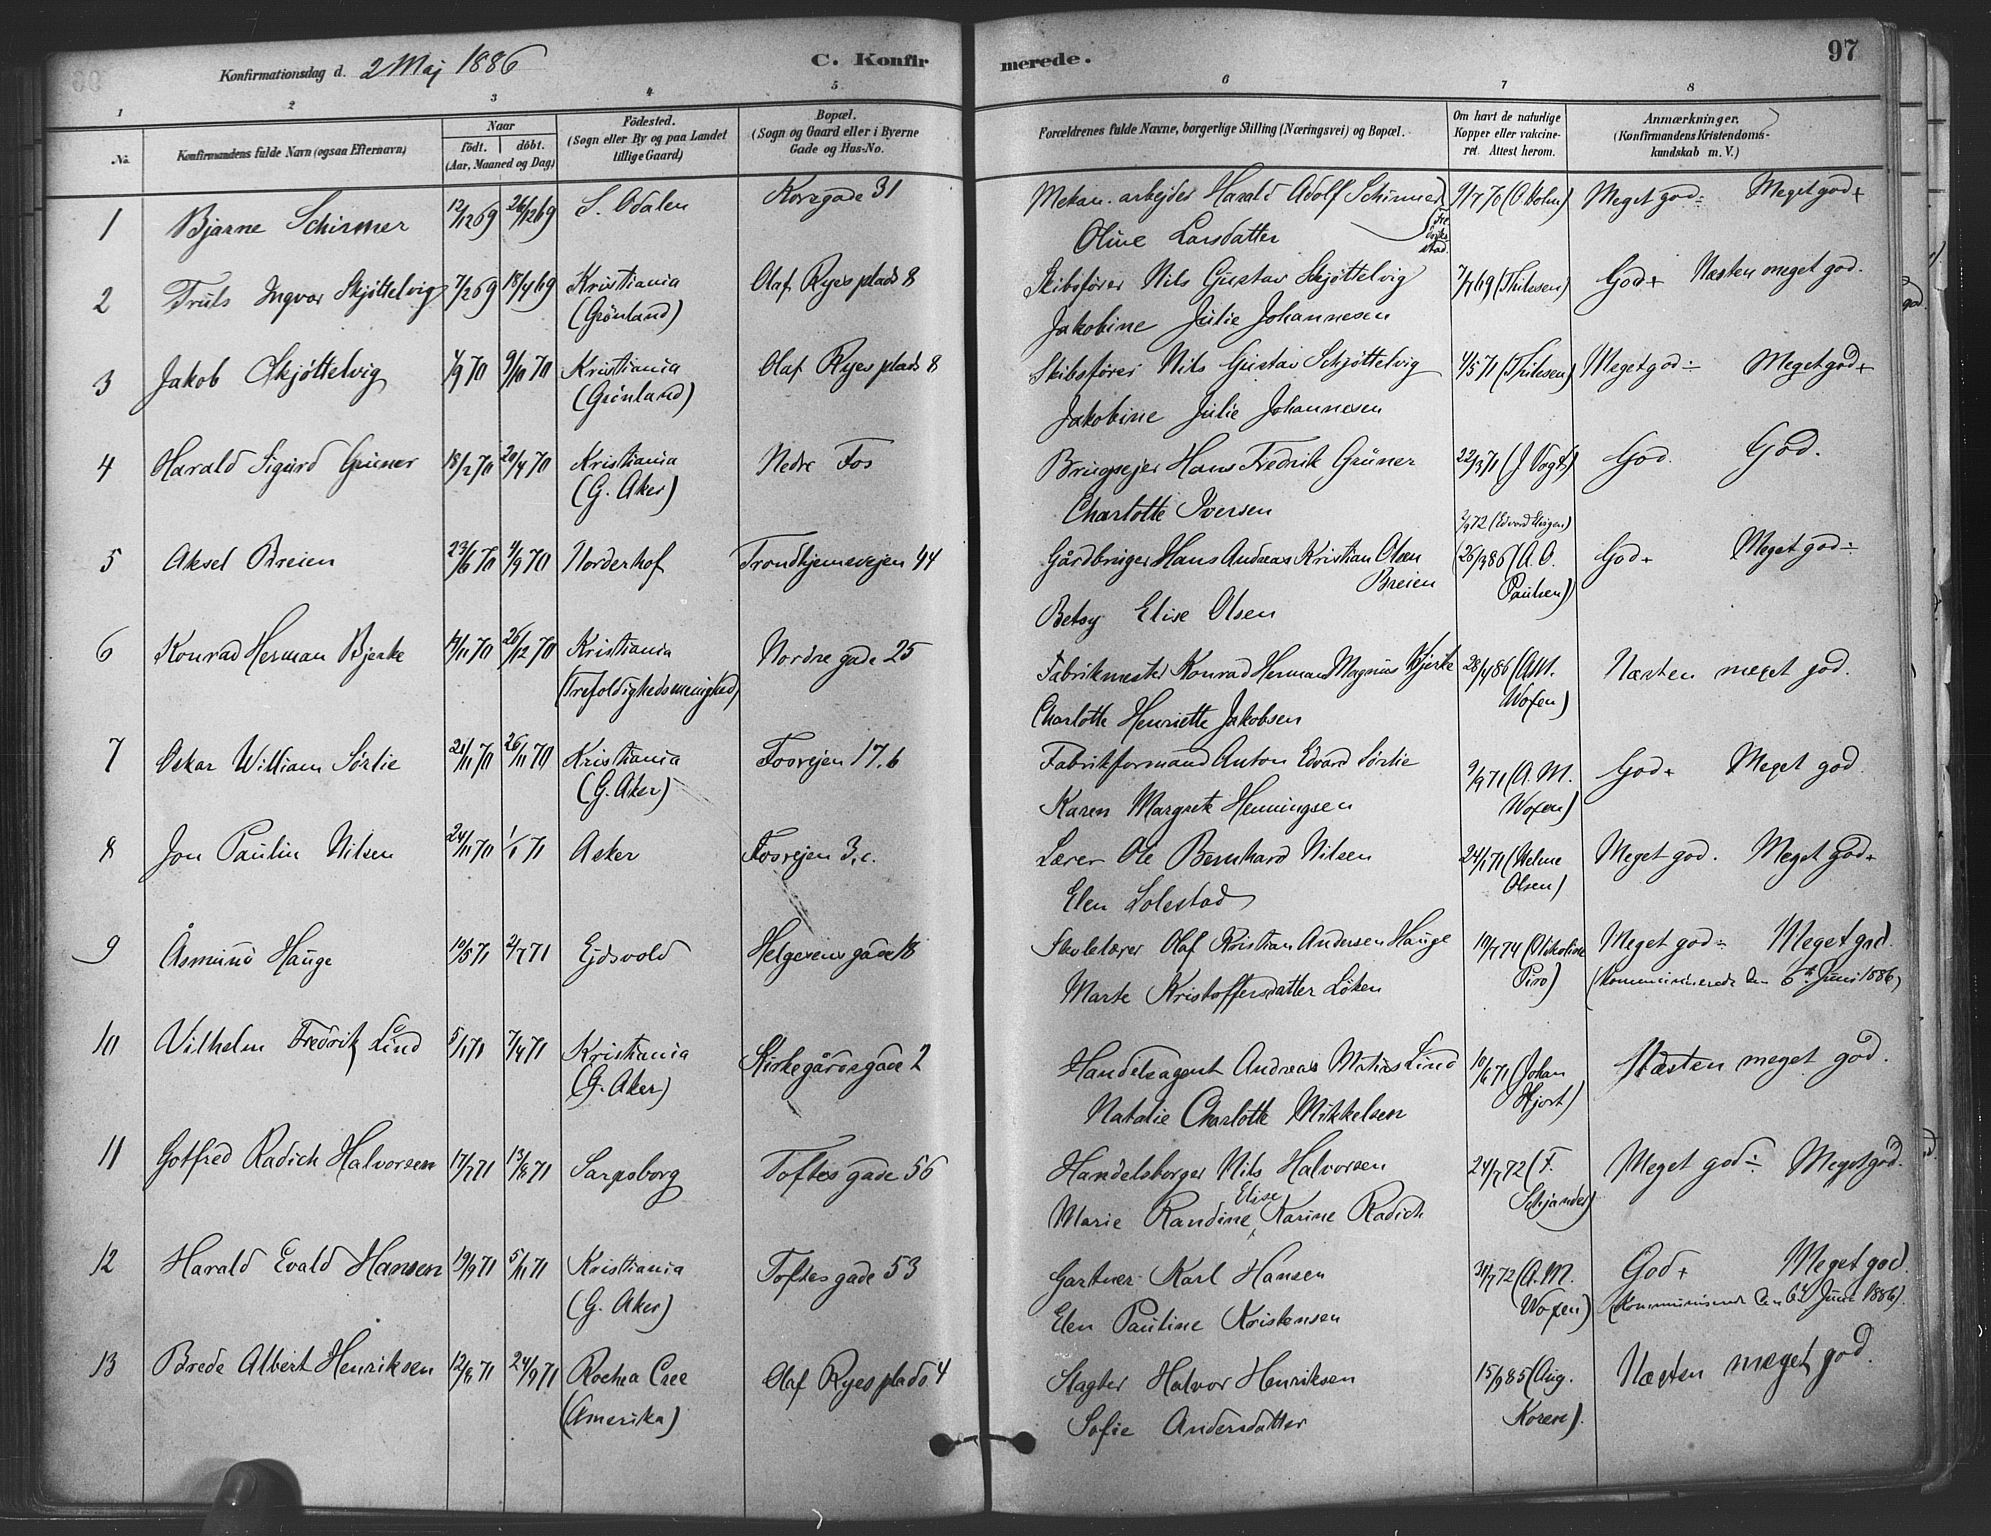 Konfirmationsdag d. 2 Maj 1886 C. Konfirmerede. 97
1 2 3 4 5 6 7 8
No. Konfirmandens fulde Navn (ogsaa Efternavn) Naar födt. döbt. (Aar, Maaned og Dag) Födested. (Sogn eller By og paa Landet tillige Gaard) Bopæl. (Sogn og Gaard eller i Byerne Gade og Hus-No. Forældrenes fulde Navne, borgerlige Stilling (Næringsvei) og Bopæl. Om havt de naturlige Kopper eller vakcineret. Attest herom. Anmærkninger. (Konfirmandens Kristendomskundskab m. V.)
1 Bjarne Schirmer 12/12 69 26/12 69 S. Odalen Korsgade 31 Mekan. arbejder Harald Adolf Schirmer 9/7 70 (O. Holm) Meget god÷ Meget god+
Oline Larsdatter
2 Truls Ingvar Skjøttelvig 7/2 69 18/4 69 Kristiania Olaf Ryes plads 8 Skibsfører Nils Gustav Skjøttelvig 7/7 69 (Thilesen) God+ Næsten meget god.
(Grønland) Jakobine Julie Johannesen
3 Jakob Skjøttelvig 1/9 70 9/10 70 Kristiania Olaf Ryes plads 8 Skibsfører Nils Gustav Schjøttelvig 4/5 71 (Thilesen) Meget god÷ Meget god+
(Grønland) Jakobine Julie Johannesen
4 Harald Sigurd Grüner 18/2 70 20/4 70 Kristiania Nedre Fos Brugsejer Hans Fredrik Grüner 22/3 71 (J. Vogt) God. God.
(G. Aker) Charlotte Iversen
5 Aksel Breien 23/6 70 4/9 70 Norderhof Trondhjemsvejen 44 Gårdbruger Hans Andreas Kristian Olsen Breien (26/3 86 (A. O. Paulsen) God+ Meget god÷
Betsy Elise Olsen
6 Konrad Herman Bjerke 17/11 70 26/12 70 Kristiania Nordre gade 25 Fabrikmester Konrad Herman Magnus Bjerke 28/4 86 (A.M. Woxen) Næsten meget god.
(Trefoldighedsmenighed) Charlotte Henriette Jakobsen
7 Oskar William Sørlie 21/11 70 26/11 70 Kristiania Fosvejen 17.b Fabrikformand Anton Edvard Sørlie 9/9 71 (A. M. Woxen) God+ Meget god
(G. Aker) Karen Margrete Henningsen
8 Jon Paulin Nilsen 24/11 70 1/1 71 Asker Fosvejen 3.c. Lærer Ole Bernhard Nilsen 24/1 71 (Helene Olsen) Meget god. Meget god+
Elen Solestad
9 Åsmund Hauge 10/5 71 2/7 71 Ejdsvold Helgesens gade 18 Skolelærer Olaf Kristian Andersen Hauge 19/7 74 (Nikoline Piro) Meget god÷ Meget god.
Marte Kristoffersdatter Løken (Kommunicerede den 6te Juni 1886)
10 Vilhelm Fredrik Lind 5/1 71 7/4 71 Kristiania Kirkegårdsgade 2 Handelsagent Andreas Matias Lind 10/6 71 (Johan Hjort) Næsten meget god.
(G. Aker) Natalie Charlotte Mikkelsen
11 Gotfred Radich Halvorsen 17/7 71 13/8 71 Sarpsborg Toftes gade 56 Handelsborger Nils Halvorsen 24/7 72 (F. Schjander) Meget god÷ Meget god.
Marie Randine Elise Karine Radich
12 Harald Evald Hansen 19/9 71 5/11 71 Kristiania Toftes gade 53 Gartner Karl Hansen 31/7 72 (A. M. Woxen) God+ Meget god.
(G. Aker) Elen Pauline Kristensen (Kommunicerede den 6te Juni 1886).
13 Brede Albert Henriksen 12/8 71 24/9 71 Rochea Cree Olaf Ryes plads 4 Slagter Halvor Henriksen 15/9 85 (Aug. Koren). Næsten meget god.
(Amerika) Sofie Andersdatter